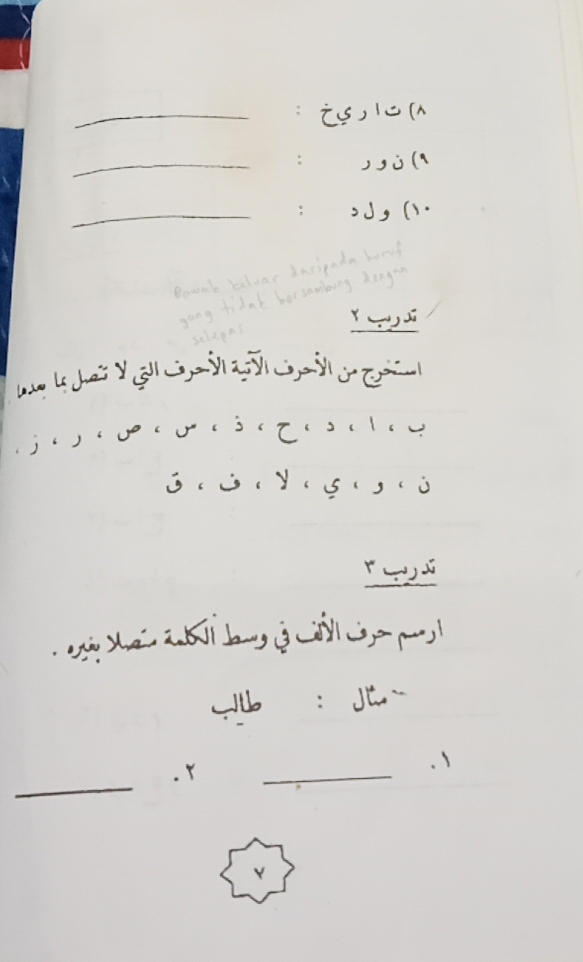 ٨) ت ا ر ي خ : ____________
٩) ن و ر : ____________
١٠) و ل د : ____________
Bawak keluar daripada huruf
yang tidak bersambung dengan
selepas
تدريب ٢
استخرج من الأحرف الآتية الأحرف التي لا تتصل بما بعدها .
ب ، ا ، د ، ح ، ذ ، س ، ص ، ر ، ز ،
ن ، و ، ي ، لا ، ف ، ق
تدريب ٣
ارسم حرف الألف في وسط الكلمة متصلا بغيره .
مثال : طالب
١. ____________ ٢. ____________
٧